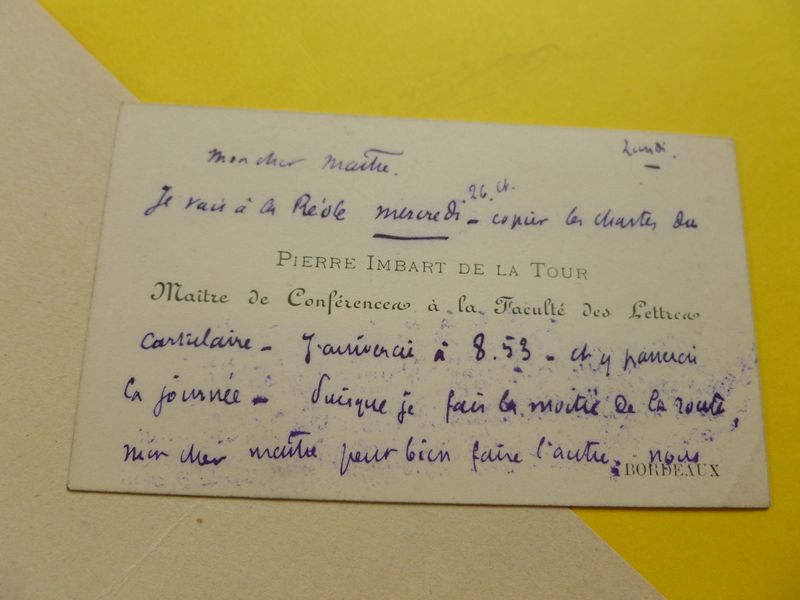 Lundi.
Mon cher Maître.
Je vais à la Réole mercredi 26. ct. – copier les chartes du
PIERRE IMBART DE LA TOUR
Maître de Conférences à la Faculté des Lettres
cartulaire – J'arriverai à 8.53 – et y passerai
la journée – Puisque je fais la moitié de la route,
mon cher maître peut bien faire l'autre. nous
BORDEAUX